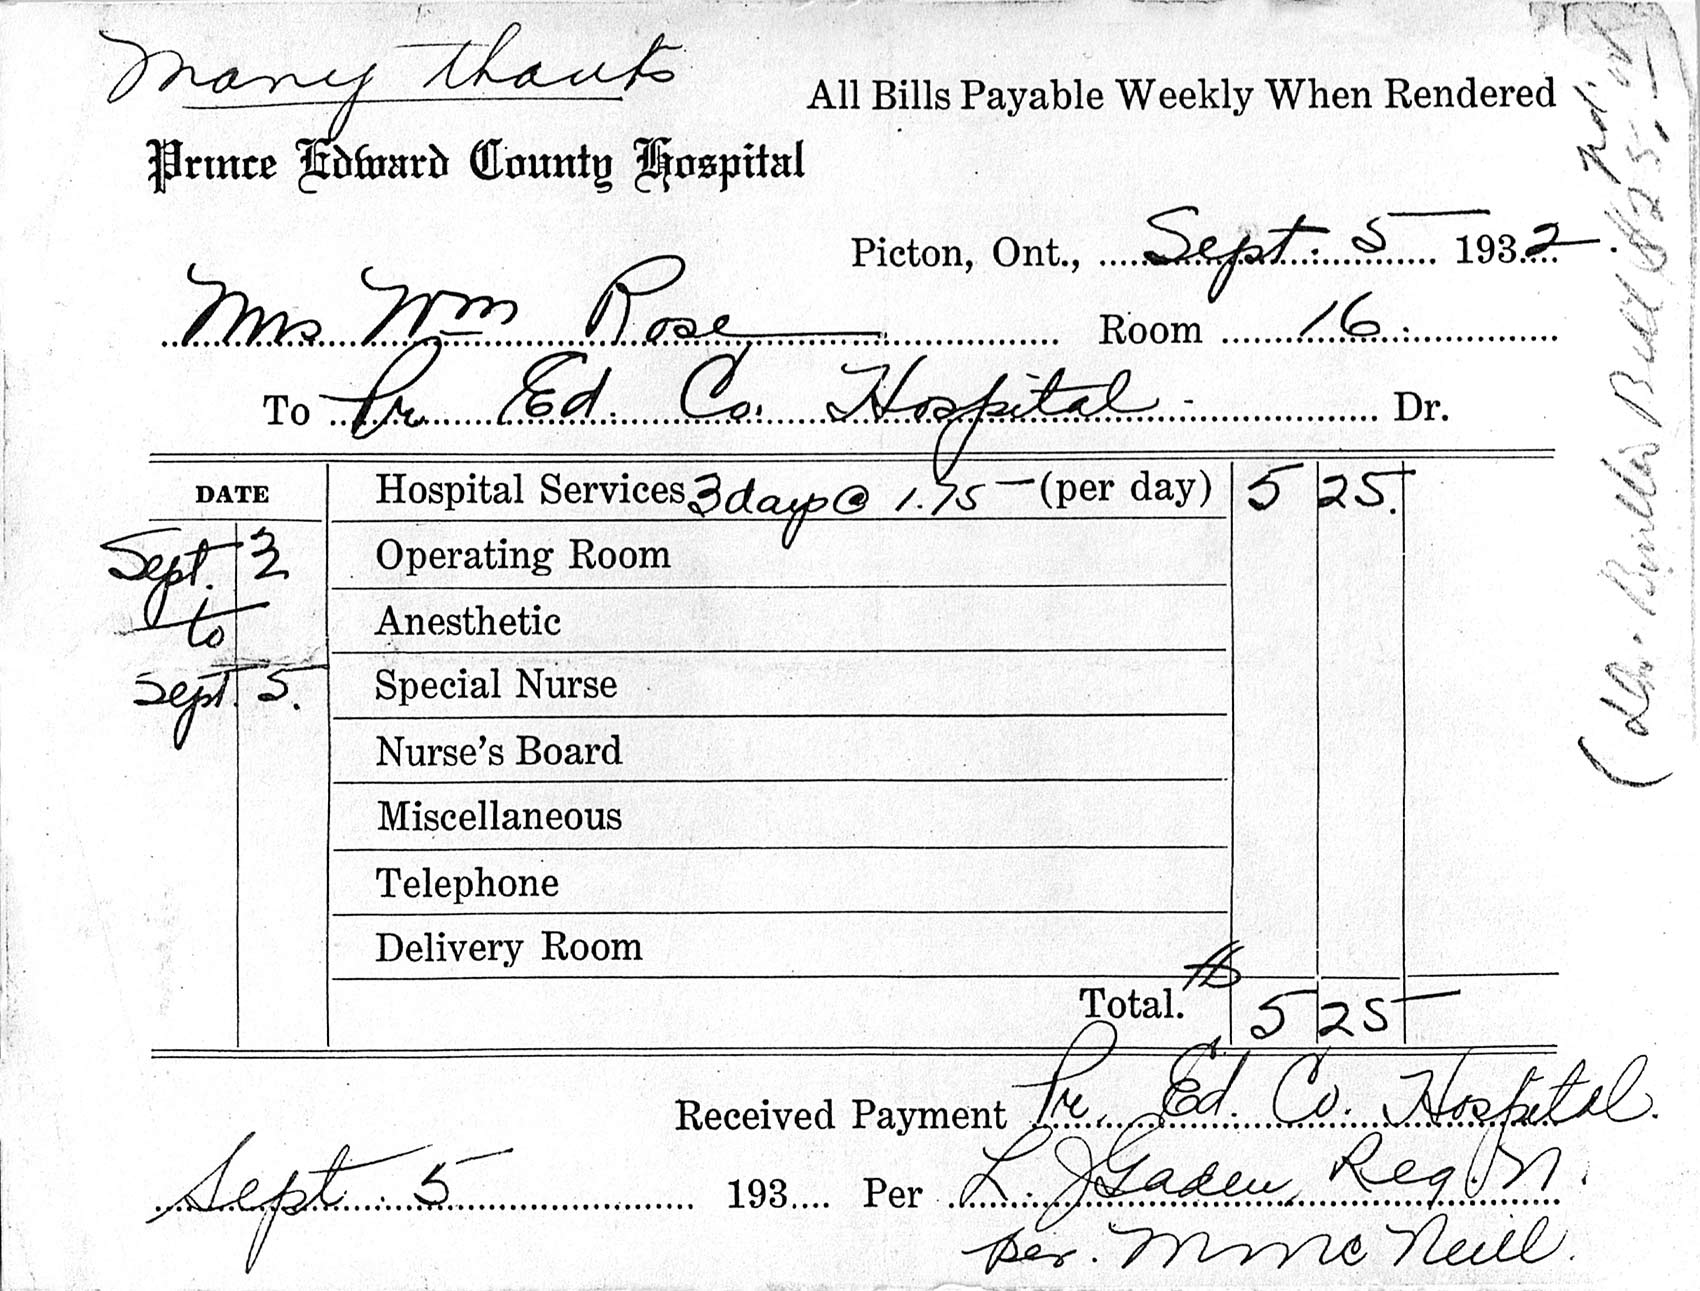 Many thanks
All Bills Payable Weekly When Rendered
Prince Edward County Hospital
Picton, Ont., Sept. 5 1932.
Mrs Wm Rose Room 16
To Pr. Ed. Co. Hospital Dr.
DATE Hospital Services 3 days @ 1.75 (per day) 5 25.
Sept. 2 Operating Room
to Anesthetic
Sept. 5. Special Nurse
Nurse's Board
Miscellaneous
Telephone
Delivery Room
Total. $ 5 25
Received Payment Pr. Ed. Co. Hospital.
Sept. 5 193 Per L. J. Gaden, Reg. N.
per. M Mc Neill.
(Dr. Bill $25.